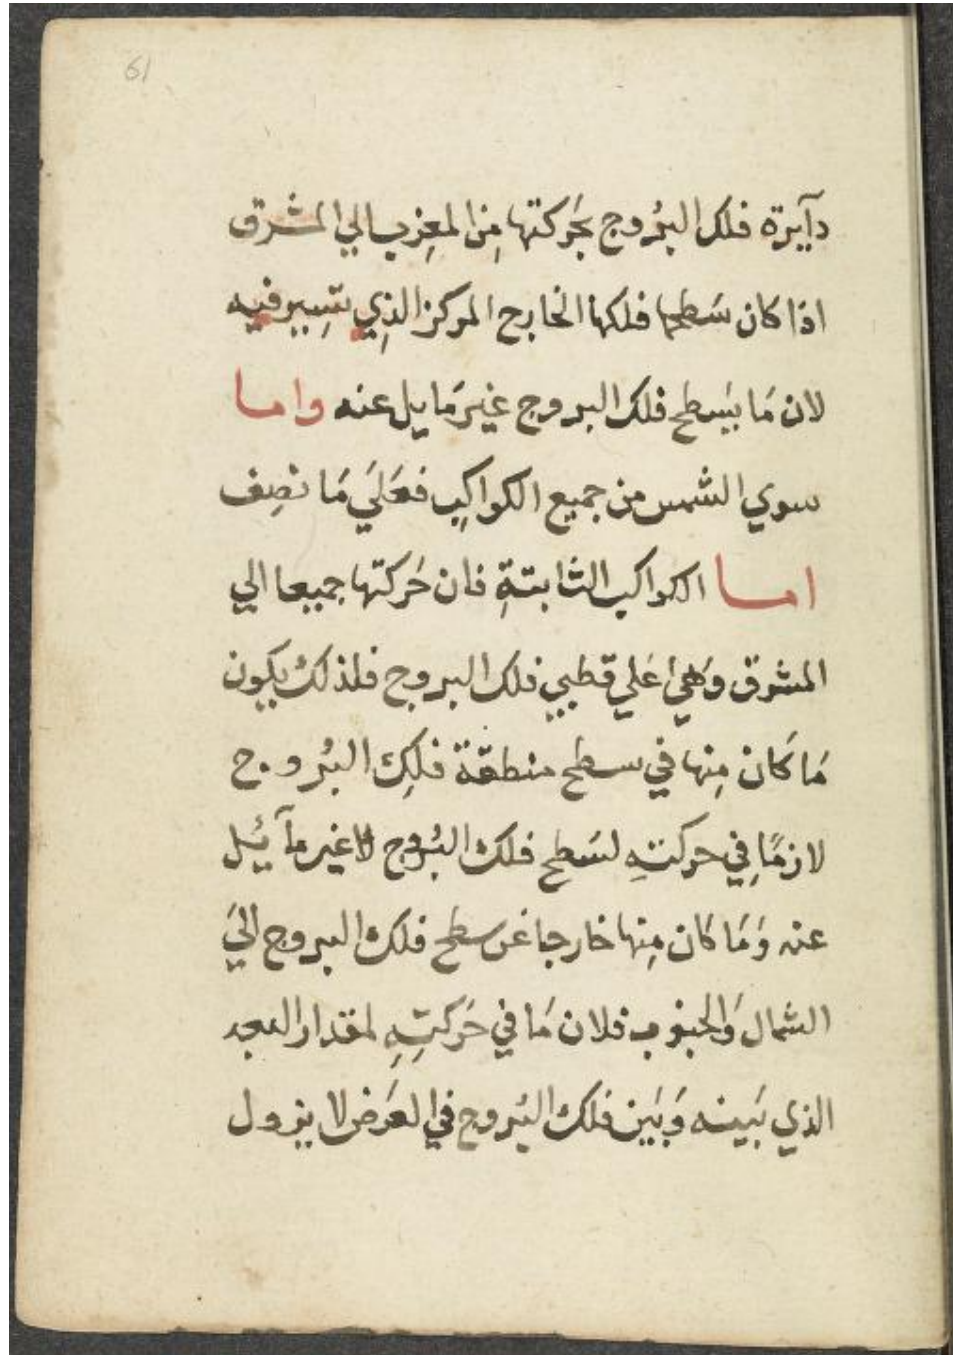 61
دآيرة فلك البُروج بحَركتها مِن المغرِب الي المشرق
اذا كان سَطحها فلكها الخارج المركز الذِي تسِير فيه
لان مَا بسَطح فلك البروج غير مَايل عنه واما
سوي الشمس من جميع الكواكبِ فعَلَي مَا نصِف
اما الكواكب الثابتةِ فان حَركتها جميعا الي
المشرق وَهي اعَلي قطبي فلك البروج فلذلك يكون
مَا كَان مِنها في سطح منطقة فلِك البُروج
لازمًا في حركتهِ لسَطح فلك البُروج لا غير مآئيل
عنه وَمَا كان مِنها خارجا عن سطح فلك البروج اليَ
الشمال وَالجنوب فلان مَا في حَركتِهِ لمقدار البعد
الذي بَينه وَبَين فلك البُروج في العَرض لا يزول